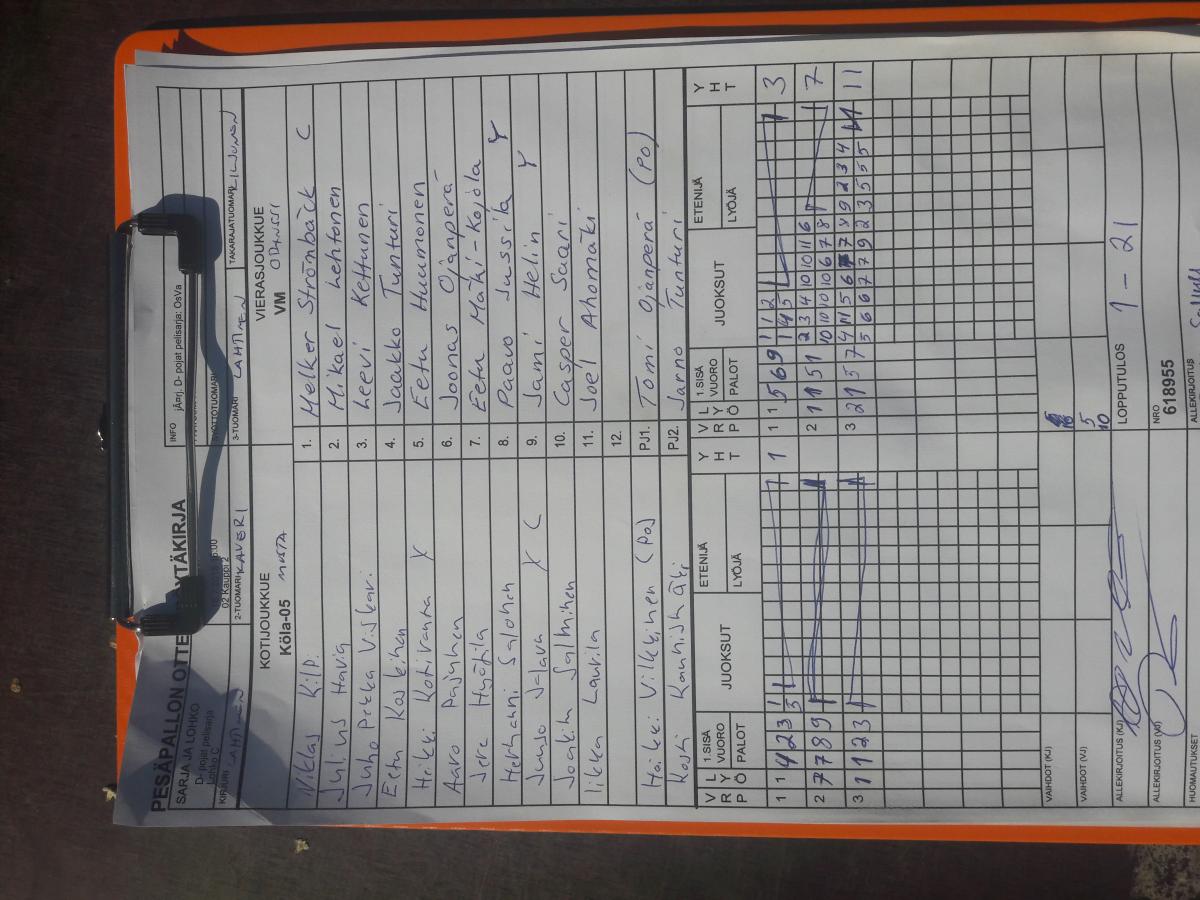 PESÄPALLON OTTE YTÄKIRJA
SARJA JA LOHKO
D- pojat pelisarja
Lohko C
02 Kauppi 2
INFO jÄ¤rj. D- pojat pelisarja: OsVa
KIRJURI LAHTINEN
2-TUOMARI KAVERI
3-TUOMARI LAHTINEN
TAKARAJATUOMARI KILJUNEN
KOTIJOUKKUE
Köla-05 MUSTA
VIERASJOUKKUE
VM ODENSSI
Niklas Kilp. 1. Melker Strömbäck C
Julius Havia 2. Mikael Lehtonen
Juho Pekka Viskari 3. Leevi Kettunen
Eetu Koskinen 4. Jaakko Tunturi
Heikki Kotiranta X 5. Eetu Huumonen
Aaro Pajunen 6. Joonas Ojanperä
Jere Hyötilä 7. Eetu Mäki-Kojola
Herhanni Salonen 8. Paavo Jussila Y
Juuso Jalava X C 9. Jami Helin Y
Joakim Salminen 10. Casper Saari
Iikka Laurila 11. Joel Ahomäki
12.
Heikki Vilkkinen (PO) PJ1. Tomi Ojanperä (PO)
Kosti Kaunismäki PJ2. Jarno Tunturi
V R P L Y Ö 1.SISÄ VUORO PALOT JUOKSUT ETENIJÄ LYÖJÄ Y H T V R P L Y Ö 1.SISÄ VUORO PALOT JUOKSUT ETENIJÄ LYÖJÄ Y H T
1 1 4 2 3 1 1 1 1 5 6 9 1 1 2 3
3 1 4 5
2 7 7 8 9 2 1 1 5 1 2 3 4 10 10 11 6 7
10 10 10 10 6 7 8
3 1 1 2 3 3 2 1 5 7 4 11 5 6 7 7 8 9 2 3 4 11
5 6 6 7 7 9 2 3 5 5 5
VAIHDOT (KJ)
VAIHDOT (VJ) 5 10
ALLEKIRJOITUS (KJ)
LOPPUTULOS 1 - 21
ALLEKIRJOITUS (VJ)
NRO 618955
HUOMAUTUKSET
ALLEKIRJOITUS